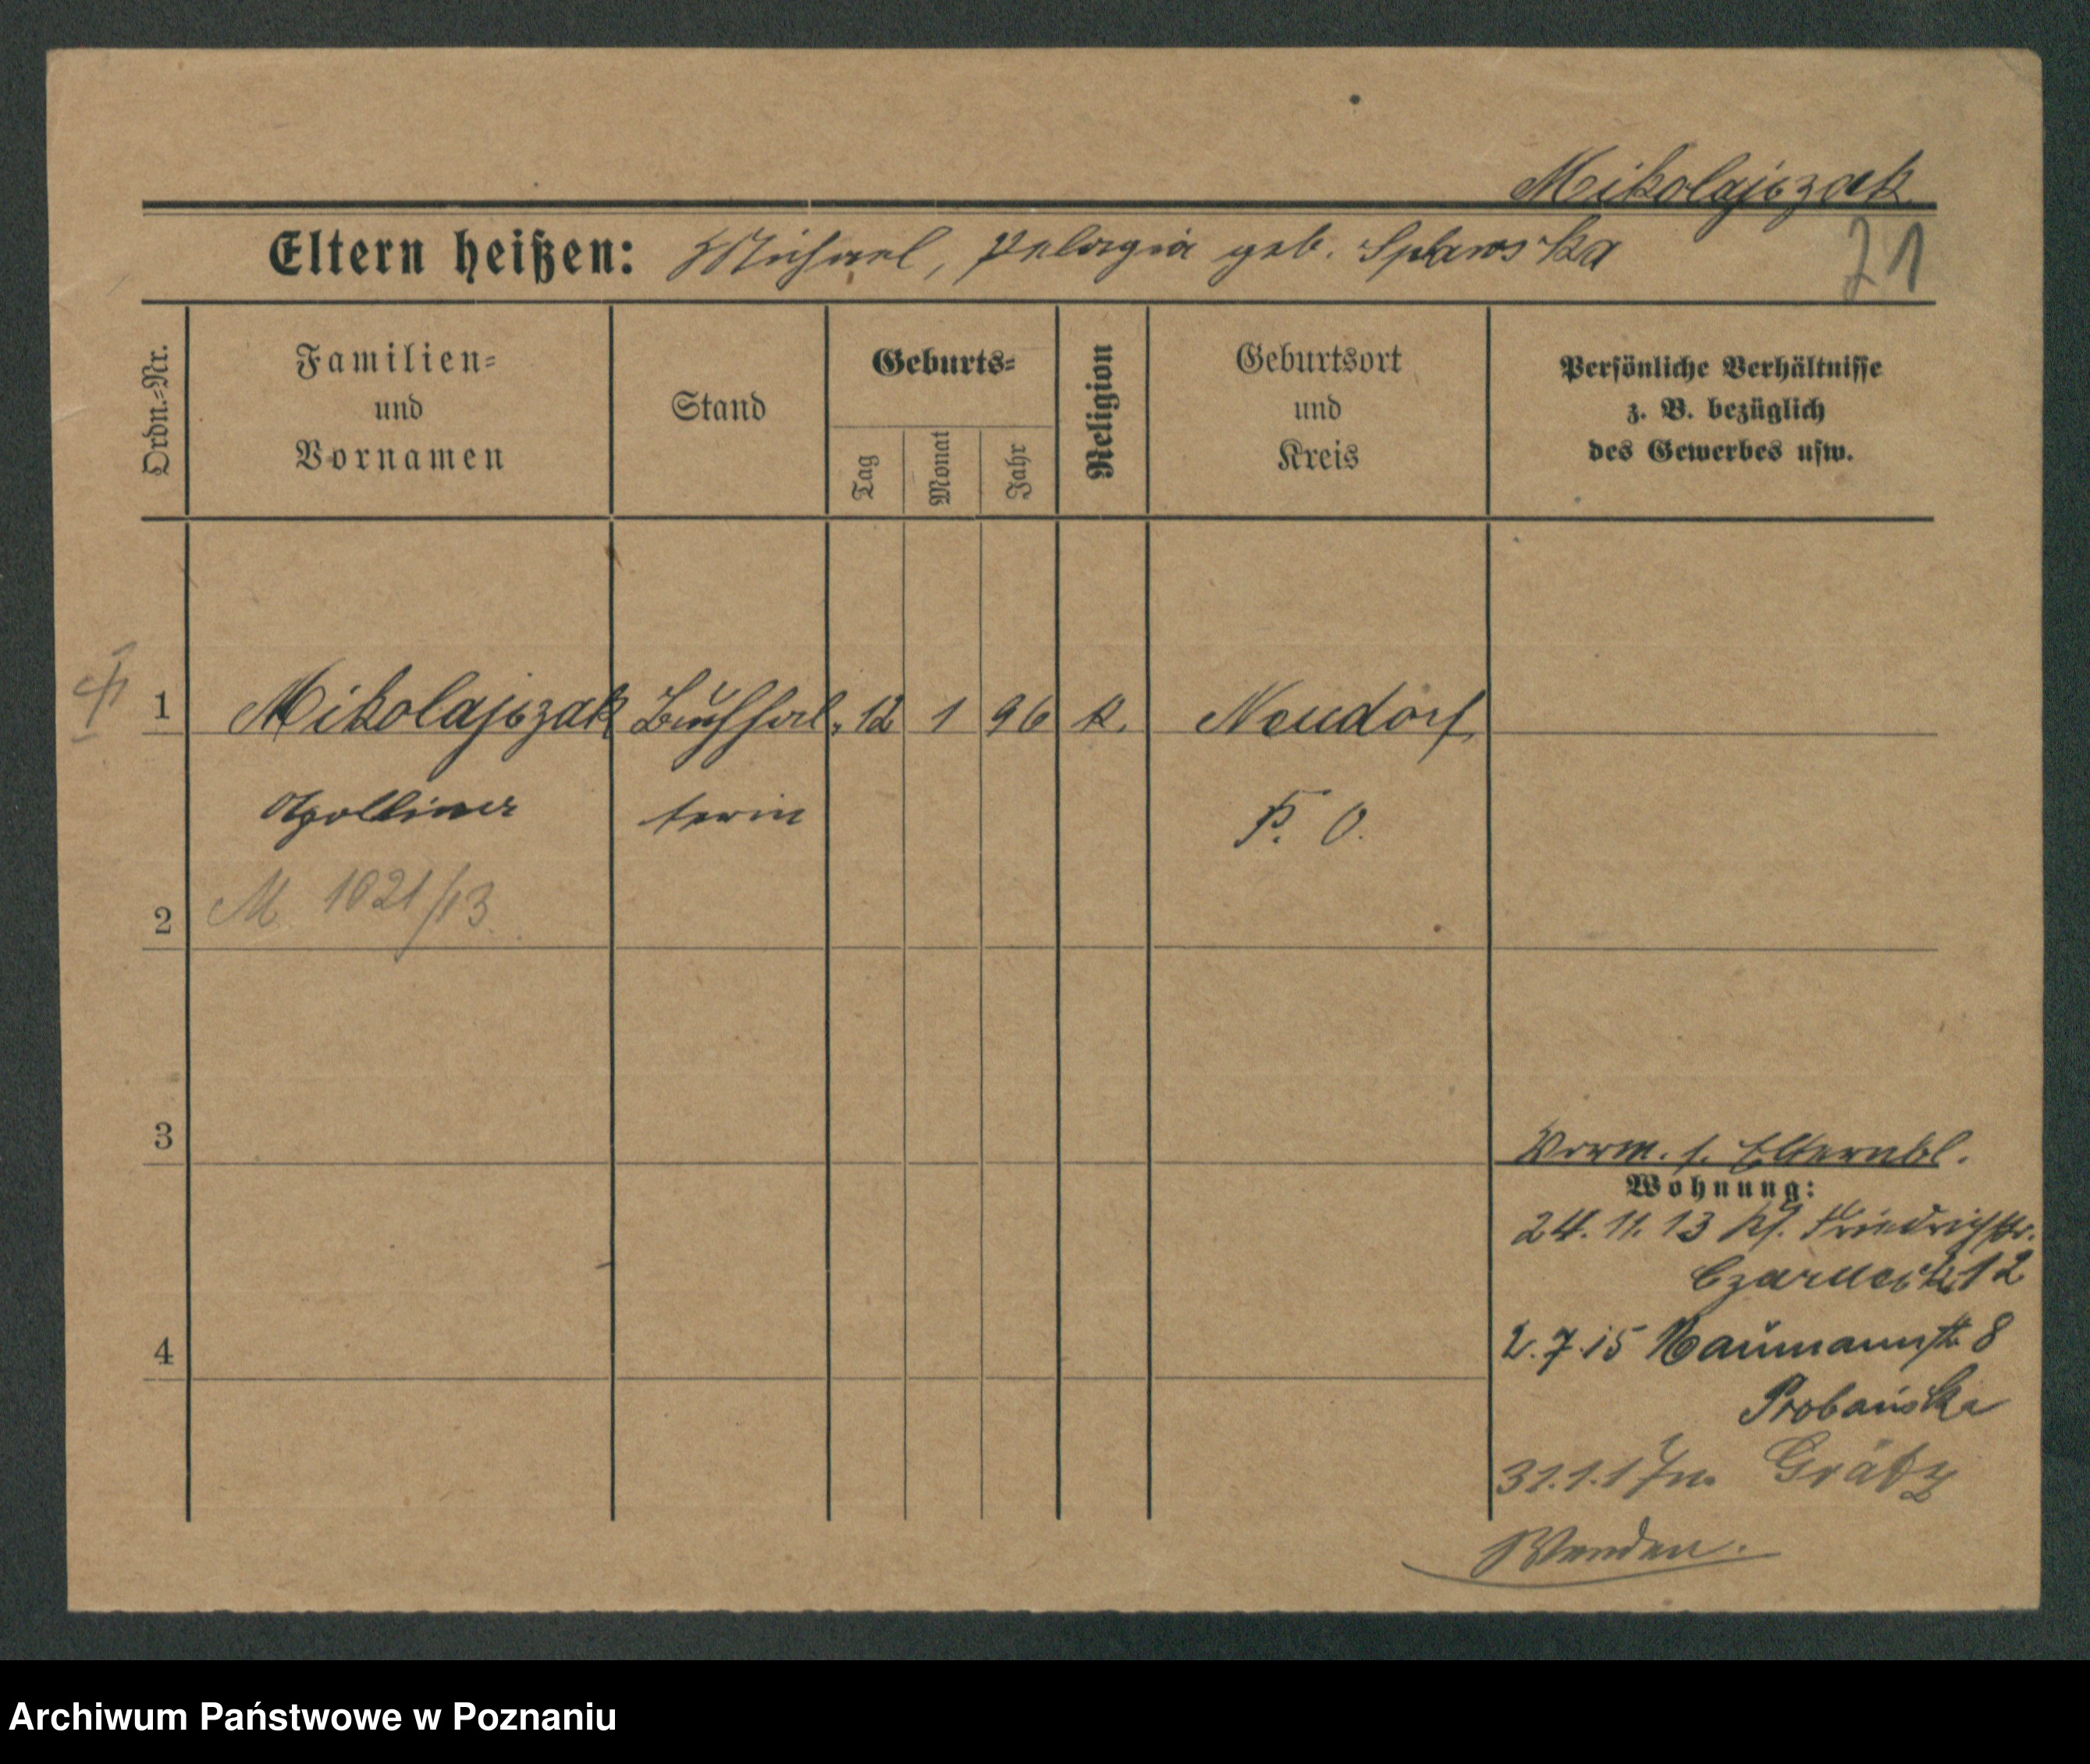 Mikolajczak
Eltern heißen: Michael, Pelagia geb. Splawska
71
Ordn.-Nr.
Familien-
und
Vornamen
Stand
Geburts-
Tag
Monat
Jahr
Religion
Geburtsort
und
Kreis
Persönliche Verhältnisse
z. B. bezüglich
des Gewerbes usw.
1 Mikolajczak Buchhal- 12 1 96 k. Neudorf
terin P. O.
2 M 1021/13.
3
Vorm. s. Elternbl.
Wohnung:
24. 11. 13 Kl. Friedrichstr.
12
4
2. 7. 15 Naumannstr. 8
31. 1. 17 n. Grätz
Wenden.
Archiwum Państwowe w Poznaniu